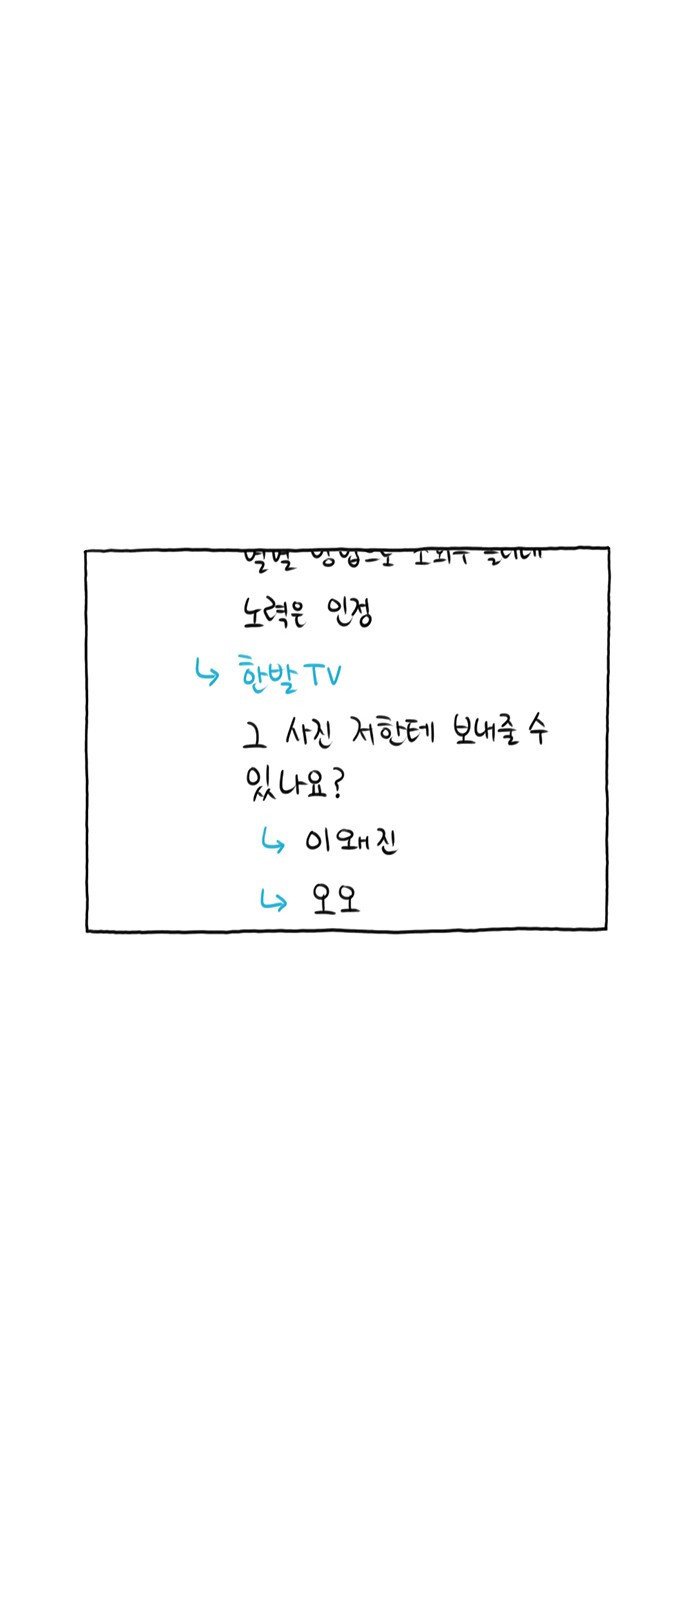 노력은 인정
↳ 한발TV
그 사진 저한테 보내줄 수
있나요?
↳ 이왜진
↳ 오오